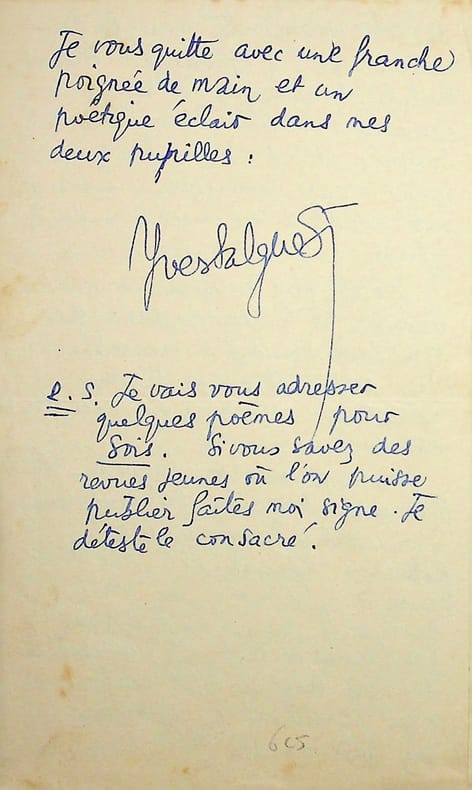 Je vous quitte avec une franche
poignée de main et un
poétique éclair dans mes
deux pupilles :
Yves Salgues
P. S. Je vais vous adresser
quelques poèmes pour
Sois. Si vous savez des
revues jeunes où l'on puisse
publier faites moi signe. Je
déteste le consacré.
605